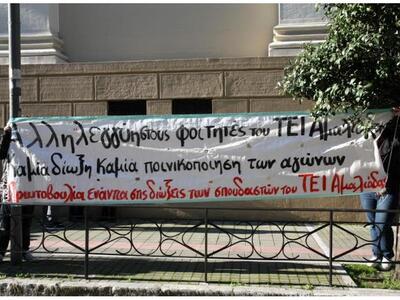 Αλληλεγγύη στους φοιτητές του ΤΕΙ Αμαλιάδας
Καμία δίωξη Καμία ποινικοποίηση των αγώνων
Πρωτοβουλία ενάντια στις διώξεις των σπουδαστών του ΤΕΙ Αμαλιάδας